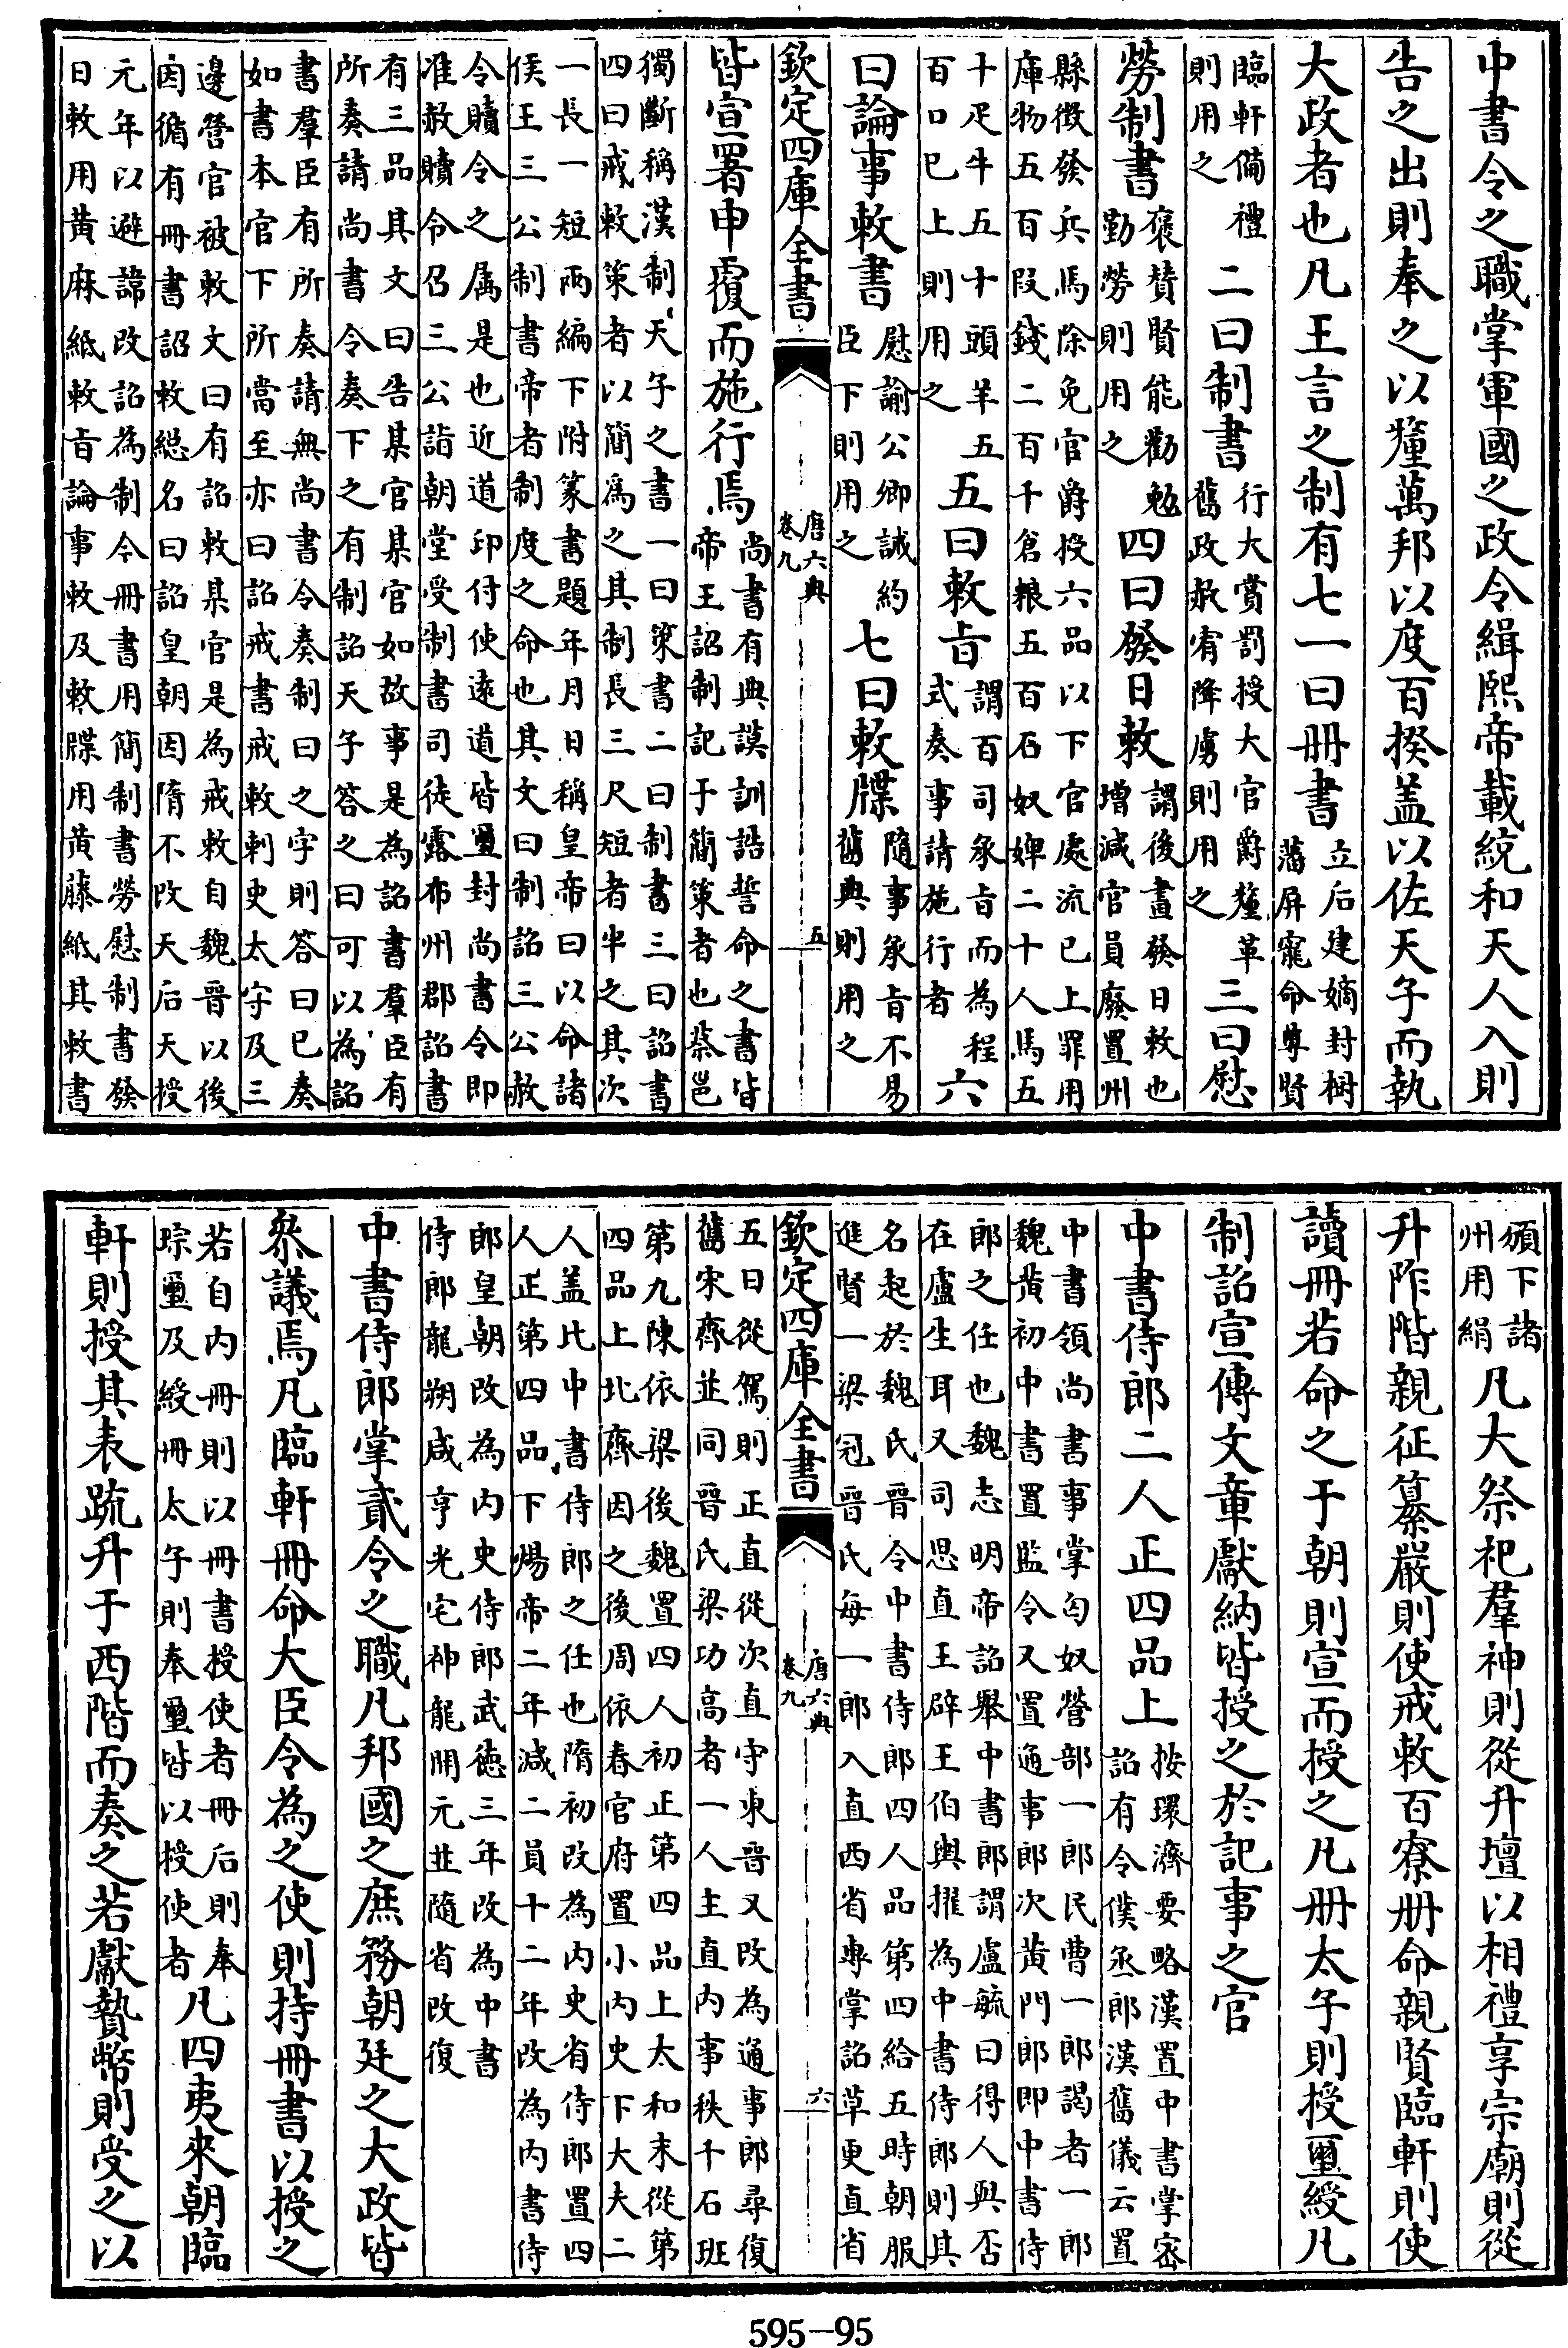 中書令之職掌軍國之政令緝熙帝載統和天人入則
告之出則奉之以釐萬邦以度百揆蓋以佐天子而執
大政者也凡王言之制有七一曰冊書立后建嫡封樹藩屏寵命尊賢
臨軒備禮則用之二曰制書行大賞罰授大官爵釐革舊政赦宥降虜則用之三曰慰
勞制書褒贊賢能勸勉勤勞則用之四曰發日敕謂後畫發日敕也增減官員廢置州
縣徵發兵馬除免官爵授六品以下官處流已上罪用
庫物五百段錢二百千倉粮五百石奴婢二十人馬五
十疋牛五十頭羊五百口已上則用之五曰敕旨謂百司承旨而為程式奏事請施行者六
曰論事敕書慰諭公卿誡約臣下則用之七曰敕牒隨事承旨不易舊典則用之
欽定四庫全書 唐六典 卷九 五
皆宣署申覆而施行焉尚書有典謨訓誥誓命之書皆帝王詔制記于簡策者也蔡邕
獨斷稱漢制天子之書一曰策書二曰制書三曰詔書
四曰戒敕策者以簡為之其制長三尺短者半之其次
一長一短兩編下附篆書題年月日稱皇帝曰以命諸
侯王三公制書帝者制度之命也其文曰制詔三公赦
令贖令之属是也近道印付使遠道皆璽封尚書令即
准赦贖令召三公詣朝堂受制書司徒露布州郡詔書
有三品其文曰告某官某官如故事是為詔書羣臣有
所奏請尚書令奏下之有制詔天子答之曰可以為詔
書羣臣有所奏請無尚書令奏制曰之字則答曰已奏
如書本官下所當至亦曰詔戒書戒敕刺史太守及三
邊營官被敕文曰有詔敕某官是為戒敕自魏晉以後
因循有冊書詔敕總名曰詔皇朝因隋不改天后天授
元年以避諱改詔為制今冊書用簡制書勞慰制書發
日敕用黃麻紙敕旨論事敕及敕牒用黃藤紙其敕書
頒下諸州用絹凡大祭祀羣神則從升壇以相禮享宗廟則從
升阼階親征纂嚴則使戒敕百寮册命親賢臨軒則使
讀冊若命之于朝則宣而授之凡册太子則授璽綬凡
制詔宣傳文章獻納皆授之於記事之官
中書侍郎二人正四品上按環濟要略漢置中書掌密詔有令僕丞郎漢舊儀云置
中書領尚書事掌匈奴營部一郎民曹一郎謁者一郎
魏黄初中書置監令又置通事郎次黄門郎即中書侍
郎之任也魏志明帝詔舉中書郎謂盧毓曰得人與否
在盧生耳又司思直王辟王伯輿擢為中書侍郎則其
名起於魏氏晉令中書侍郎四人品第四給五時朝服
進賢一梁冠晉氏每一郎入直西省專掌詔草更直省
欽定四庫全書 唐六典 卷九 六
五日從駕則正直從次直守東晉又改為通事郎尋復
舊宋齊並同晉氏梁功高者一人主直內事秩千石班
第九陳依梁後魏置四人初正第四品上太和末從第
四品上北齊因之後周依春官府置小內史下大夫二
人盖比中書侍郎之任也隋初改為內史省侍郎置四
人正第四品下煬帝二年減二員十二年改為內書侍
郎皇朝改為內史侍郎武德三年改為中書
侍郎龍朔咸亨光宅神龍開元並隨省改復
中書侍郎掌貳令之職凡邦國之庶務朝廷之大政皆
叅議焉凡臨軒冊命大臣令為之使則持冊書以授之
若自內冊則以冊書授使者冊后則奉琮璽及綬冊太子則奉璽皆以授使者凡四夷來朝臨
軒則授其表疏升于西階而奏之若獻贄幣則受之以
595-95